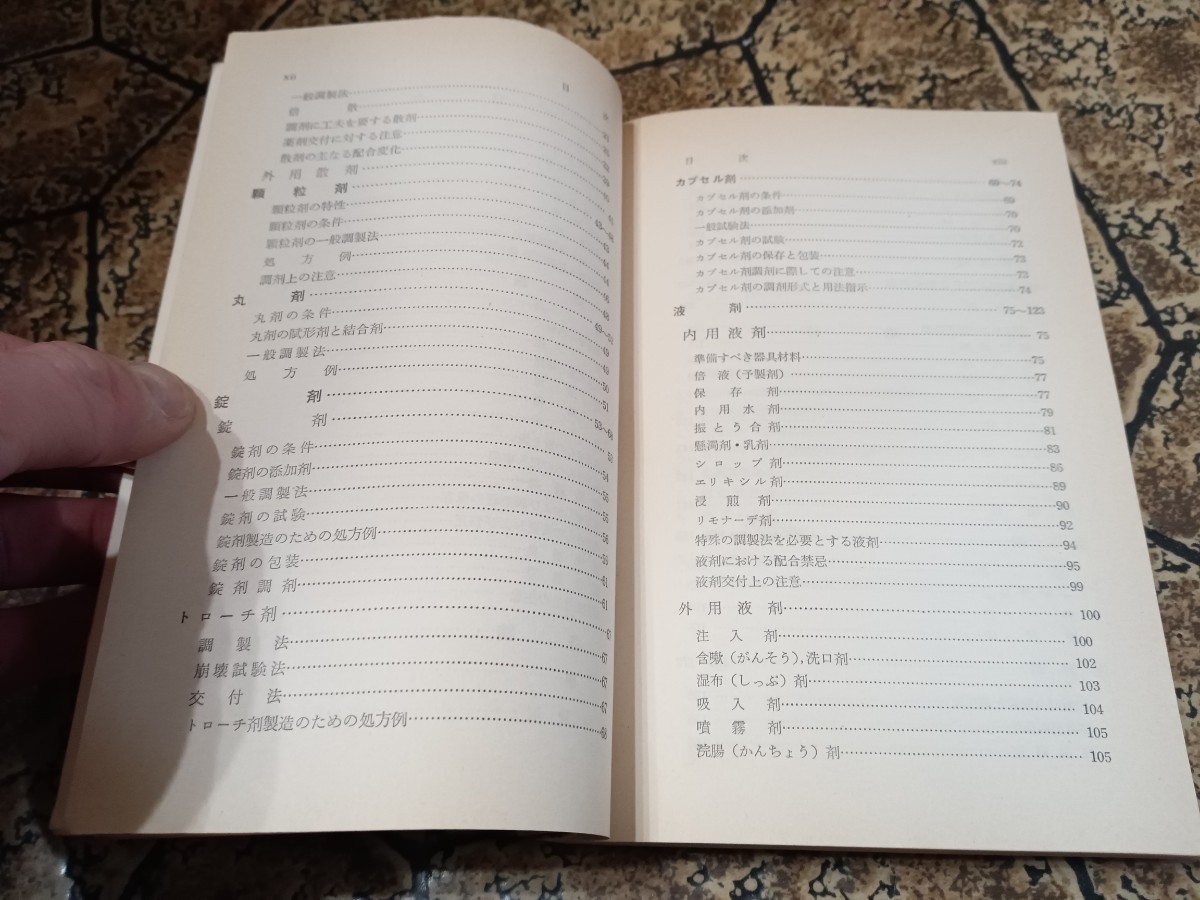 xii 目
一般調製法
倍 散
調剤に工夫を要する散剤
薬剤交付に対する注意
散剤の主なる配合変化
外用散剤
顆粒剤
顆粒剤の特性
顆粒剤の条件
顆粒剤の一般調製法
処方例
調剤上の注意
丸剤
丸剤の条件
丸剤の賦形剤と結合剤
一般調製法
処方例
錠剤
錠剤
錠剤の条件
錠剤の添加剤……54
一般調製法
錠剤の試験
錠剤製造のための処方例
錠剤の包装
錠剤調剤……61
トローチ剤……67
調製法……67
崩壊試験法……67
交付法……67
トローチ剤製造のための処方例……68
目次 xiii
カプセル剤……69～74
カプセル剤の条件……69
カプセル剤の添加剤……70
一般試験法……70
カプセル剤の試験……72
カプセル剤の保存と包装……73
カプセル剤調剤に際しての注意……73
カプセル剤の調剤形式と用法指示……74
液剤……75～123
内用液剤……75
準備すべき器具材料……75
倍液（予製剤）……77
保存剤……77
内用水剤……79
振とう合剤……81
懸濁剤・乳剤……83
シロップ剤……86
エリキシル剤……89
浸煎剤……90
リモナーデ剤……92
特殊の調製法を必要とする液剤……94
液剤における配合禁忌……95
液剤交付上の注意……99
外用液剤……100
注入剤……100
含嗽（がんそう），洗口剤……102
湿布（しっぷ）剤……103
吸入剤……104
噴霧剤……105
浣腸（かんちょう）剤……105